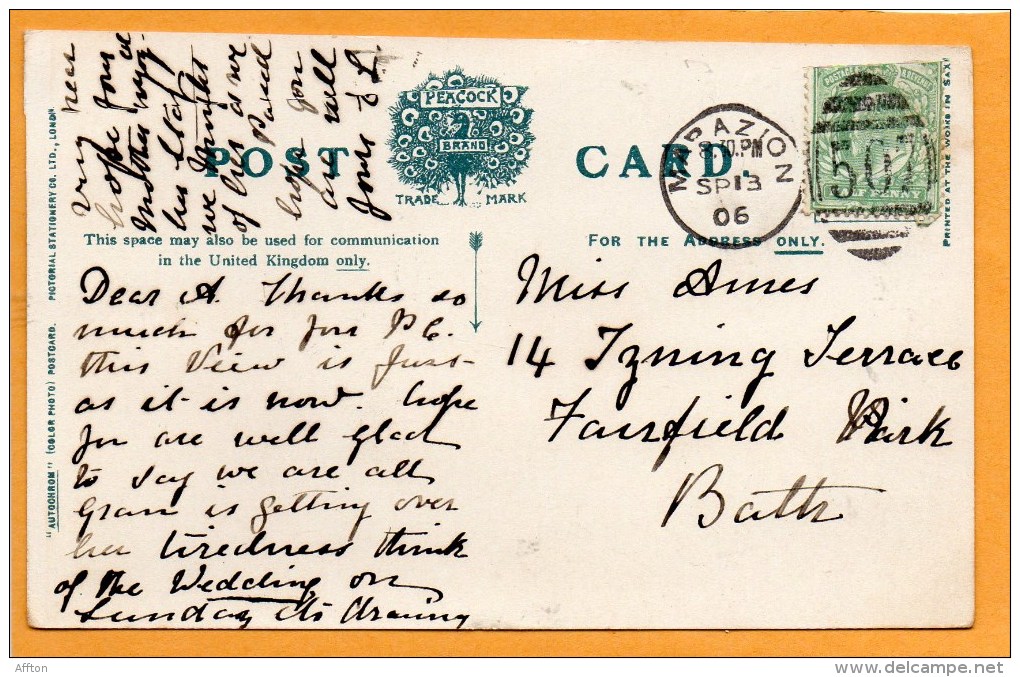 very near
hope you all
Mother enjoy
her stay
we thought
of her and we
Paul
hope you
are well
Yours
POST CARD.
PEACOCK
BRAND
TRADE MARK
MARAZION
8.30.PM
SP13
06
POSTAGE & REVENUE
507
This space may also be used for communication
in the United Kingdom only.
FOR THE ADDRESS ONLY.
"AUTOCHROM" (COLOR PHOTO) POSTCARD. PICTORIAL STATIONERY CO. LTD., LONDON
PRINTED AT THE WORKS IN SAX
Dear A. Thanks so
much for your P.C.
this View is Just
as it is now. hope
you are well glad
to say we are all
Gran is getting over
her tiredness think
of the Wedding on
Sunday its drawing
Miss Ames
14 Izning Terrace
Fairfield Park
Bath
Affton
http://www.delcampe.net